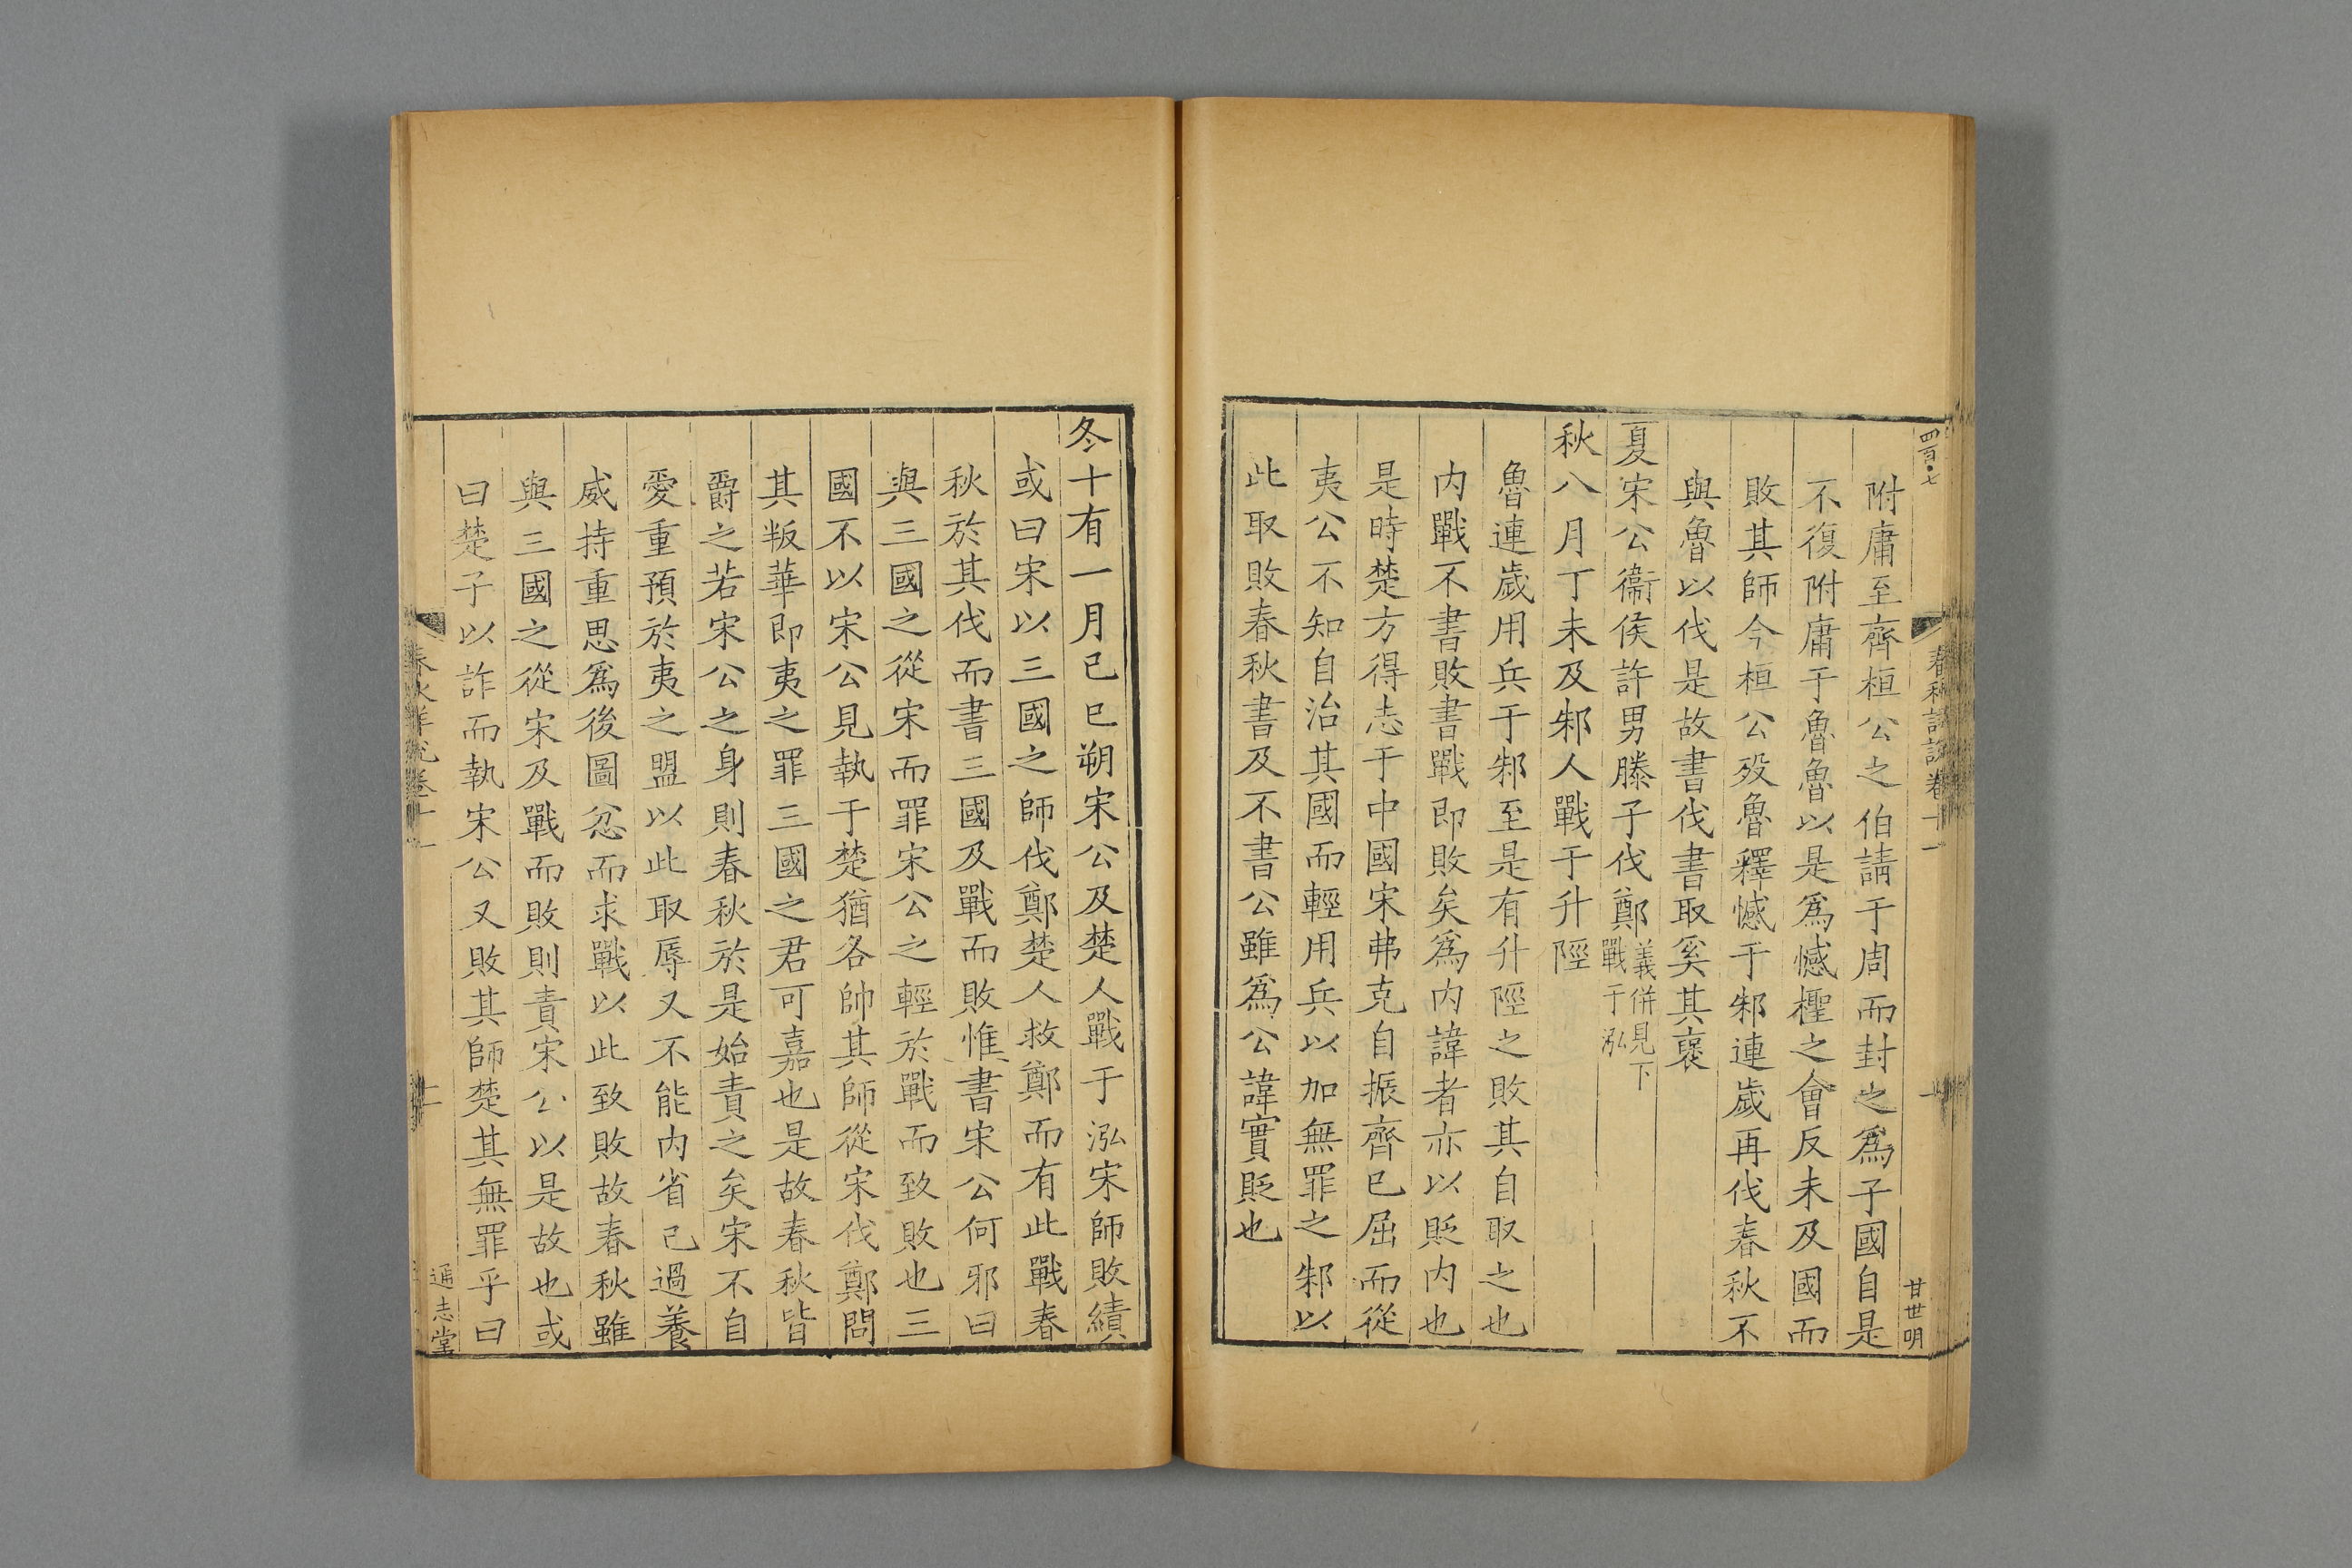 四百七
春秋詳說卷十一
甘世明
附庸至齊桓公之伯請于周而封之爲子國自是
不復附庸于魯魯以是爲憾檉之會反未及國而
敗其師今桓公歿魯釋憾于邾連歲再伐春秋不
與魯以伐是故書伐書取奚其襃
夏宋公衞侯許男滕子伐鄭義併見下
戰于泓
秋八月丁未及邾人戰于升陘
魯連歲用兵于邾至是有升陘之敗其自取之也
內戰不書敗書戰即敗矣爲內諱者亦以貶內也
是時楚方得志于中國宋弗克自振齊已屈而從
夷公不知自治其國而輕用兵以加無罪之邾以
此取敗春秋書及不書公雖爲公諱實貶也
冬十有一月己巳朔宋公及楚人戰于泓宋師敗績
或曰宋以三國之師伐鄭楚人救鄭而有此戰春
秋於其伐而書三國及戰而敗惟書宋公何邪曰
與三國之從宋而罪宋公之輕於戰而致敗也三
國不以宋公見執于楚猶各帥其師從宋伐鄭問
其叛華即夷之罪三國之君可嘉也是故春秋皆
爵之若宋公之身則春秋於是始責之矣宋不自
愛重預於夷之盟以此取辱又不能內省己過養
威持重思爲後圖忿而求戰以此致敗故春秋雖
與三國之從宋及戰而敗則責宋公以是故也或
曰楚子以詐而執宋公又敗其師楚其無罪乎曰
春秋詳說卷十一
十一
通志堂